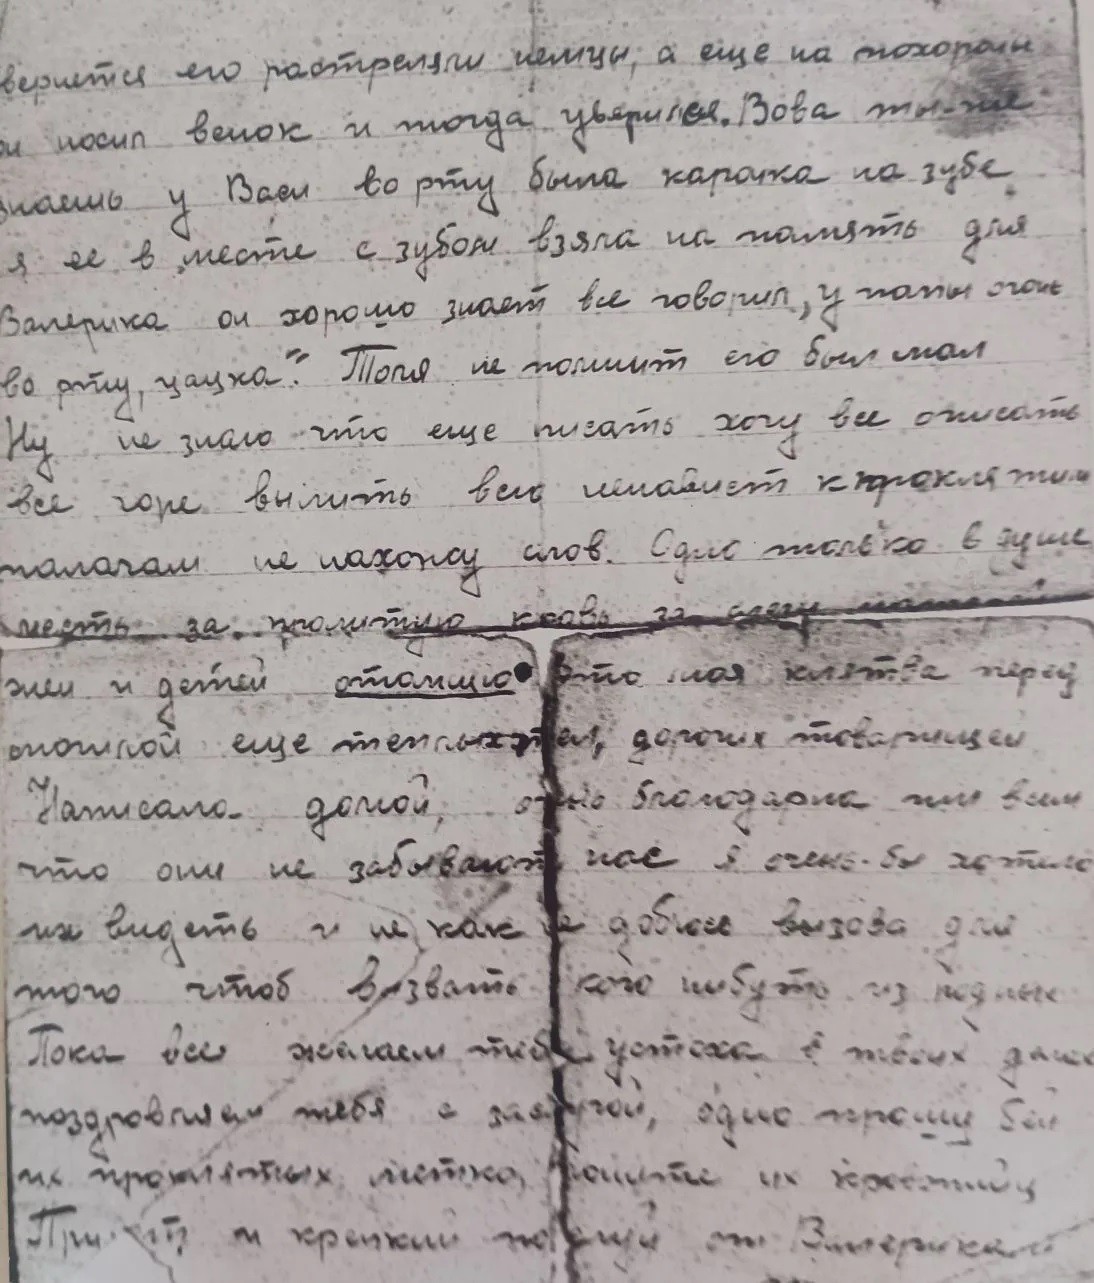 вернется его растреляли немцы, а еще на похороны
он носил венок и тогда уверился. Вова ты-же
знаешь у Васи во рту была каронка на зубе
я ее в месте с зубом взяла на память для
Валерика он хорошо знает все говорил, у папы огонь
во рту, цацка". Толя не помнит его был мал
Ну не знаю что еще писать хочу все описать
все горе вылить всю ненавист к проклятым
палачам не нахожу слов. Одно только в душе
месть за пролитую кровь за слезы
жен и детей отомщю это моя клятва перед
могилой еще теплых тел, дорогих товарищей
Написала домой, очень благодарна им всем
что они не забывают нас я очень-бы хотела
их видеть и не как не добюсь вызова для
того чтоб вызвать кого нибуть из родных
Пока все желаем тебе успеха в твоих делах
поздровляем тебя с заслугой, одно прошу бей
их проклятых метко, пошите их
Привет и крепкий поцелуй от Валерика